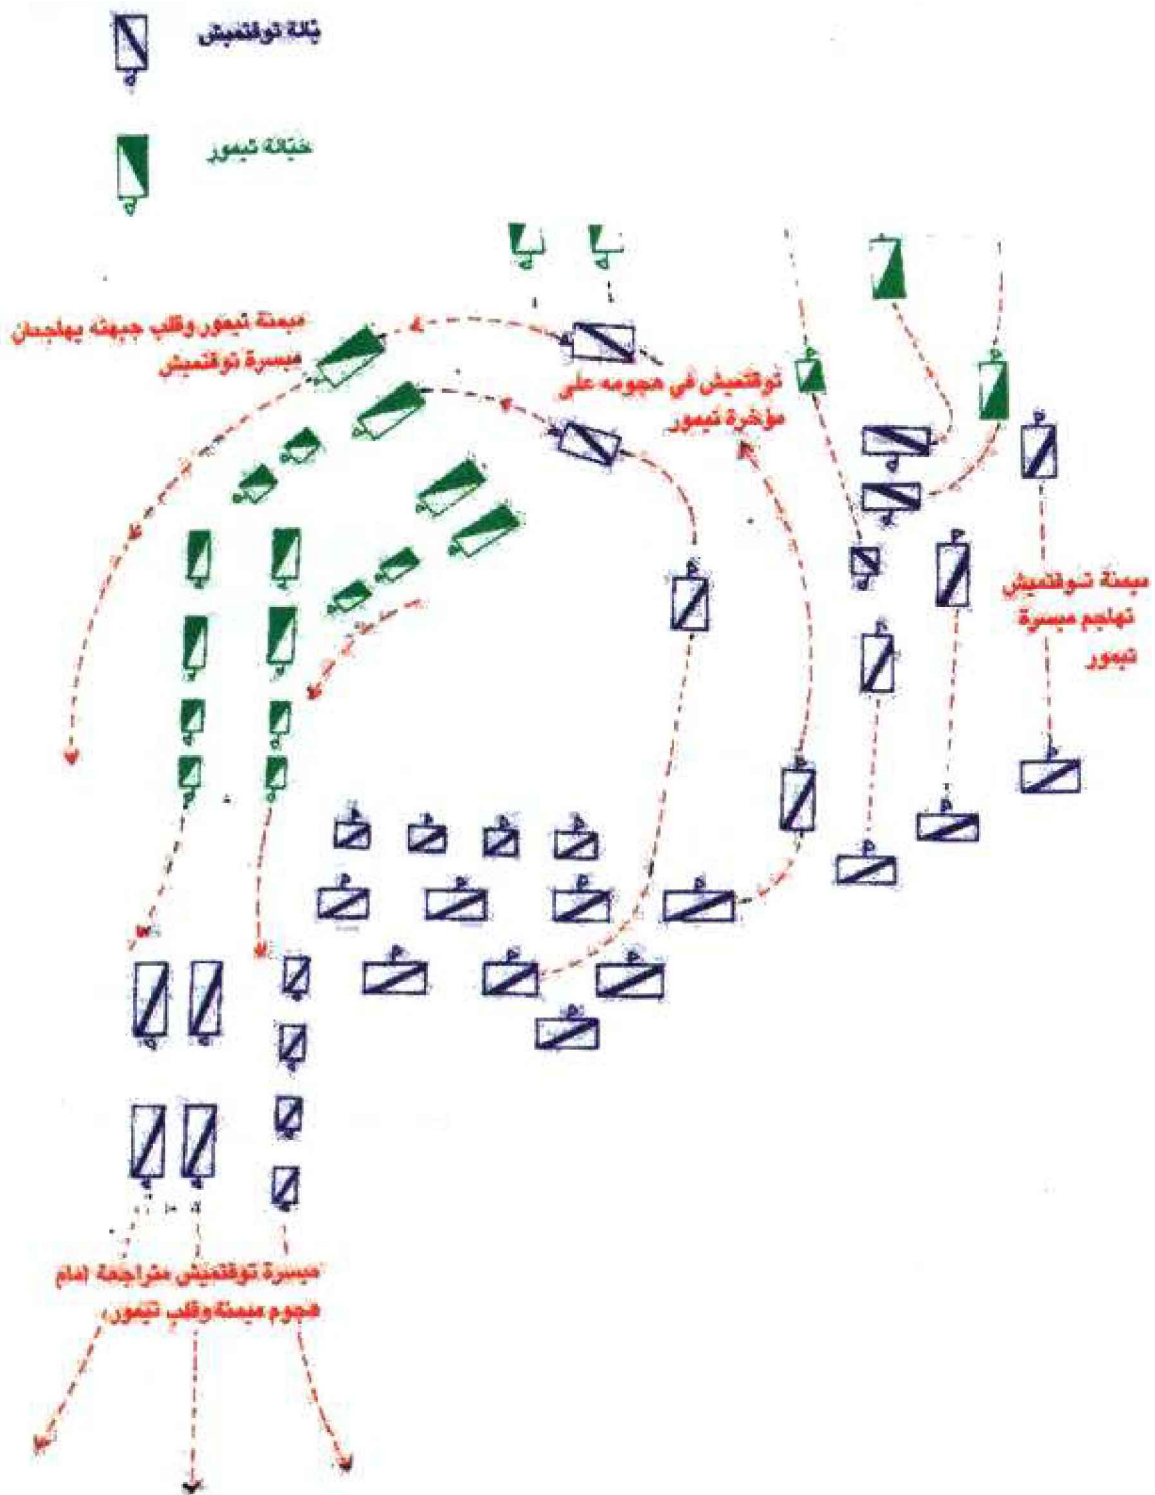 توقتميش
خيّالة تيمور
ميمنة تيمور وقلب جبهته يهاجمان
ميسرة توقتميش
توقتميش في هجومه على
مؤخرة تيمور
ميمنة توقتميش
تهاجم ميسرة
تيمور
ميسرة توقتميش متراجعة امام
هجوم ميمنة وقلب تيمور،